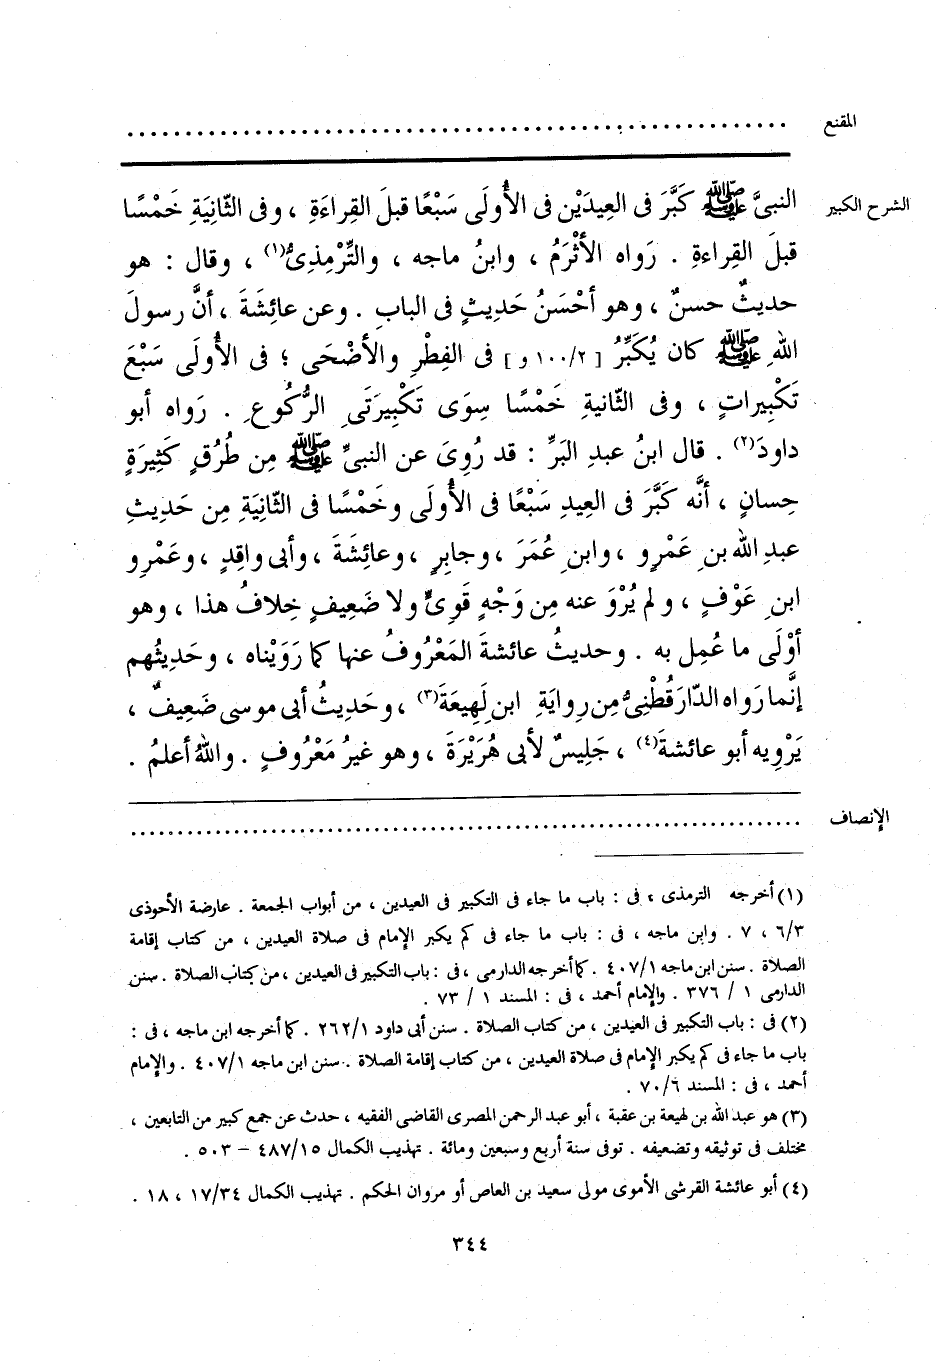 المقنع ........................................................................
الشرح الكبير النبىَّ ﷺ كَبَّرَ فى العِيدَيْن فى الأُولَى سَبْعًا قبلَ القِراءَةِ ، وفى الثّانِيَةِ خَمْسًا
قبلَ القِراءةِ . رَواه الأثْرَمُ ، وابنُ ماجه ، والتِّرْمِذِىُّ(١) ، وقال : هو
حديثٌ حسنٌ ، وهو أحْسَنُ حَدِيثٍ فى البابِ . وعن عائِشَةَ ، أنَّ رسولَ
اللهِ ﷺ كان يُكَبِّرُ [ ١٠٠/٢ و ] فى الفِطْرِ والأضْحَى ؛ فى الأُولَى سَبْعَ
تَكْبِيراتٍ ، وفى الثّانيةِ خَمْسًا سِوَى تَكْبِيرَتَىِ الرُّكُوعِ . رَواه أبو
داودَ(٢) . قال ابنُ عبدِ البَرِّ : قد رُوِىَ عن النبىِّ ﷺ مِن طُرُقٍ كَثِيرَةٍ
حِسانٍ ، أنَّه كَبَّرَ فى العِيدِ سَبْعًا فى الأُولَى وخَمْسًا فى الثّانِيَةِ مِن حَدِيثِ
عبدِ اللهِ بنِ عَمْرٍو ، وابنِ عُمَرَ ، وجابِرٍ ، وعائِشَةَ ، وأبى واقِدٍ ، وعَمْرِو
ابنِ عَوْفٍ ، ولم يُرْوَ عنه مِن وَجْهٍ قَوِىٍّ ولا ضَعِيفٍ خِلافُ هذا ، وهو
أوْلَى ما عُمِل به . وحديثُ عائشةَ المَعْرُوفُ عنها كما رَوَيْناه ، وحَدِيثُهم
إنَّما رَواه الدّارَقُطْنِىُّ مِن رِوايَةِ ابنِ لَهِيعَةَ(٣) ، وحَدِيثُ أبى موسى ضَعِيفٌ ،
يَرْوِيه أبو عائشةَ(٤) ، جَلِيسٌ لأبى هُرَيْرَةَ ، وهو غيرُ مَعْرُوفٍ . واللهُ أعلمُ .
الإنصاف ........................................................................
(١) أخرجه الترمذى ، فى : باب ما جاء فى التكبير فى العيدين ، من أبواب الجمعة . عارضة الأحوذى
٦/٣ ، ٧ . وابن ماجه ، فى : باب ما جاء فى كم يكبر الإمام فى صلاة العيدين ، من كتاب إقامة
الصلاة . سنن ابن ماجه ٤٠٧/١ . كما أخرجه الدارمى ، فى : باب التكبير فى العيدين ، من كتاب الصلاة . سنن
الدارمى ١ / ٣٧٦ . والإمام أحمد ، فى : المسند ١ / ٧٣ .
(٢) فى : باب التكبير فى العيدين ، من كتاب الصلاة . سنن أبى داود ٢٦٢/١ . كما أخرجه ابن ماجه ، فى :
باب ما جاء فى كم يكبر الإمام فى صلاة العيدين ، من كتاب إقامة الصلاة . سنن ابن ماجه ٤٠٧/١ . والإمام
أحمد ، فى : المسند ٧٠/٦ .
(٣) هو عبد الله بن لهيعة بن عقبة ، أبو عبد الرحمن المصرى القاضى الفقيه ، حدث عن جمع كبير من التابعين ،
مختلف فى توثيقه وتضعيفه . توفى سنة أربع وسبعين ومائة . تهذيب الكمال ٤٨٧/١٥ – ٥٠٣ .
(٤) أبو عائشة القرشى الأموى مولى سعيد بن العاص أو مروان الحكم . تهذيب الكمال ١٧/٣٤ ، ١٨ .
٣٤٤